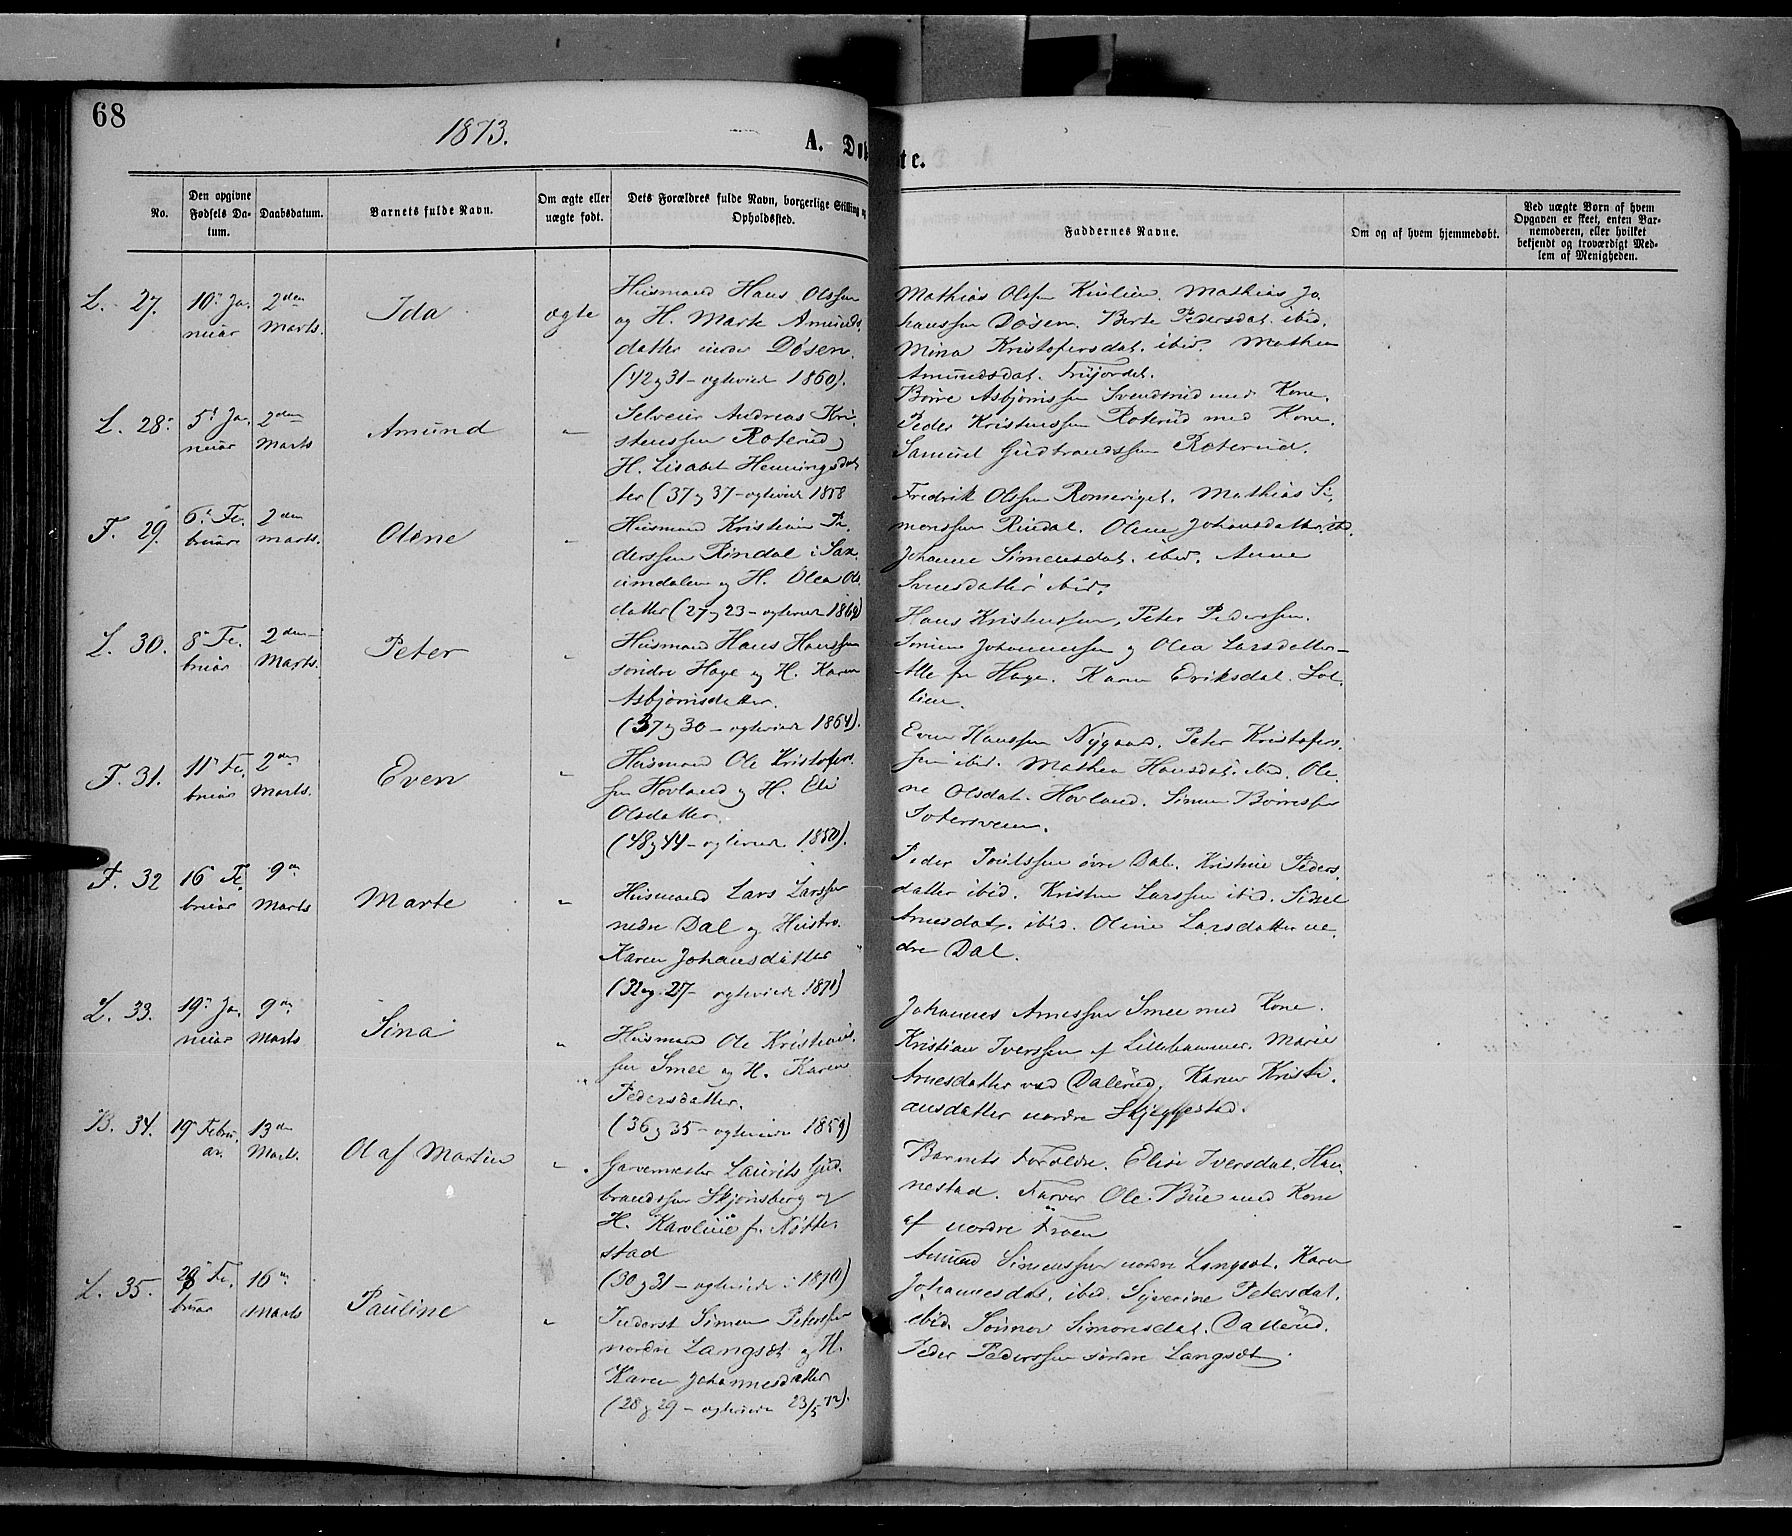 68
1873.
A. Døbte.
No.
Den opgivne Fødsels Da-
tum.
Daabsdatum.
Barnets fulde Navn.
Om ægte eller
uægte født.
Dets Forældres fulde Navn, borgerlige Stilling og
Opholdssted.
Faddernes Navne.
Om og af hvem hjemmedøbt.
Ved uægte Børn af hvem
Opgaven er skeet, enten Bar-
nemoderen, eller hvilket
bekjendt og troværdigt Med-
lem af Menigheden.
L. 27. 10. Ja-
nuar
2den
Marts.
Ida
ægte
Husmand Hans Olssen
og H. Marte Amunds-
datter under Døsen.
(42 og 31 - egteviede 1860).
Mathias Olssen Kinlien. Mathias Jo-
hanssen Døsen. Berte Pedersdat. ibid.
Mina Kristofersdat. ibid. Mathea
Amundsdat. Trujordet.
L. 28. 5. Ja-
nuar
2den
Marts
Amund
Selveier Andreas Kri-
stenssen Roterud og
H. Lisabet Henningsdat-
ter (37 og 37 - egteviede 1858
Børre Asbjørnssen Svendsrud med Kone.
Peder Kristenssen Roterud med Kone.
Samuel Gudbrandssen Roterud.
F. 29. 6. Fe-
bruar
2den
Marts.
Oline
Husmand Kristian Pe-
derssen Rindal i Sax-
umdalen og H. Olea Ols-
datter (27 og 23 - egteviede 1869)
Fredrik Olssen Romeriget. Mathias Si-
monssen Rindal. Oline Johansdatter ibid.
Johanne Simensdat. ibid. Anne
Svensdatter ibid.
L. 30. 8. Fe-
bruar
2den
Marts.
Peter
Husmand Hans Hanssen
søndre Hage og H. Karen
Asbjørnsdatter.
(37 og 30 - egteviede 1864).
Hans Kristenssen, Peter Pederssen.
Simen Johannessen og Olea Larsdatter -
Alle fra Hage. Karen Eriksdat. Sol-
lien.
F. 31. 11. Fe-
bruar
2den
Marts.
Even
Husmand Ole Kristofers-
sen Hovland og H. Eli
Olsdatter.
(48 og 44 - egteviede 1850).
Even Hanssen Nygaard. Peter Kristofers-
sen ibid. Mathea Hansdat. ibid. Oli-
ne Olsdat. Hovland. Simen Børressen
F. 32 16 Fe-
bruar
9de
Marts
Marte
Husmand Lars Larssen
nedre Dal og Hustru
Karen Johansdatter
(32 og 27 - egteviede 1870)
Peder Poulssen øvre Dal. Kristine Peders-
datter ibid. Kristen Larssen ibid. Sidsel
Arnesdat. ibid. Oline Larsdatter ne-
dre Dal.
L. 33. 19. Ja-
nuar
9de
Marts
Sina
Husmand Ole Kristians-
sen Smee og H. Karen
Pedersdatter.
(36 og 35 - egteviede 1859)
Johannes Arnessen Smee med Kone.
Kristian Iverssen af Lillehammer. Marie
Arnesdatter ved Dalerud. Karen Kristi-
ansdatter nordre Skjeggestad.
B. 34. 19. Febru-
ar.
13de
Marts.
Olaf Martin
Garvermester Laurits Gud-
brandssen Skjønsberg og
H. Karoline f. Nøtte-
stad
(30 og 31 - egteviede i 1870)
Barnets Forældre. Elise Iversdat. Hau-
nestad. Farver Ole Bue med Kone
af nordre Froen
L. 35. 28. Fe-
bruar
16de
Marts
Pauline
Inderst Simen Peterssen
nordre Langsæt og H.
Karen Johannesdatter
(28 og 29 - egteviede 23/5 72).
Amund Simenssen nordre Langsæt. Karen
Johannesdat. ibid. Syverine Petersdat.
ibid. Sønnov Simonsdat. Dalerud.
Peder Pederssen søndre Langsæt.